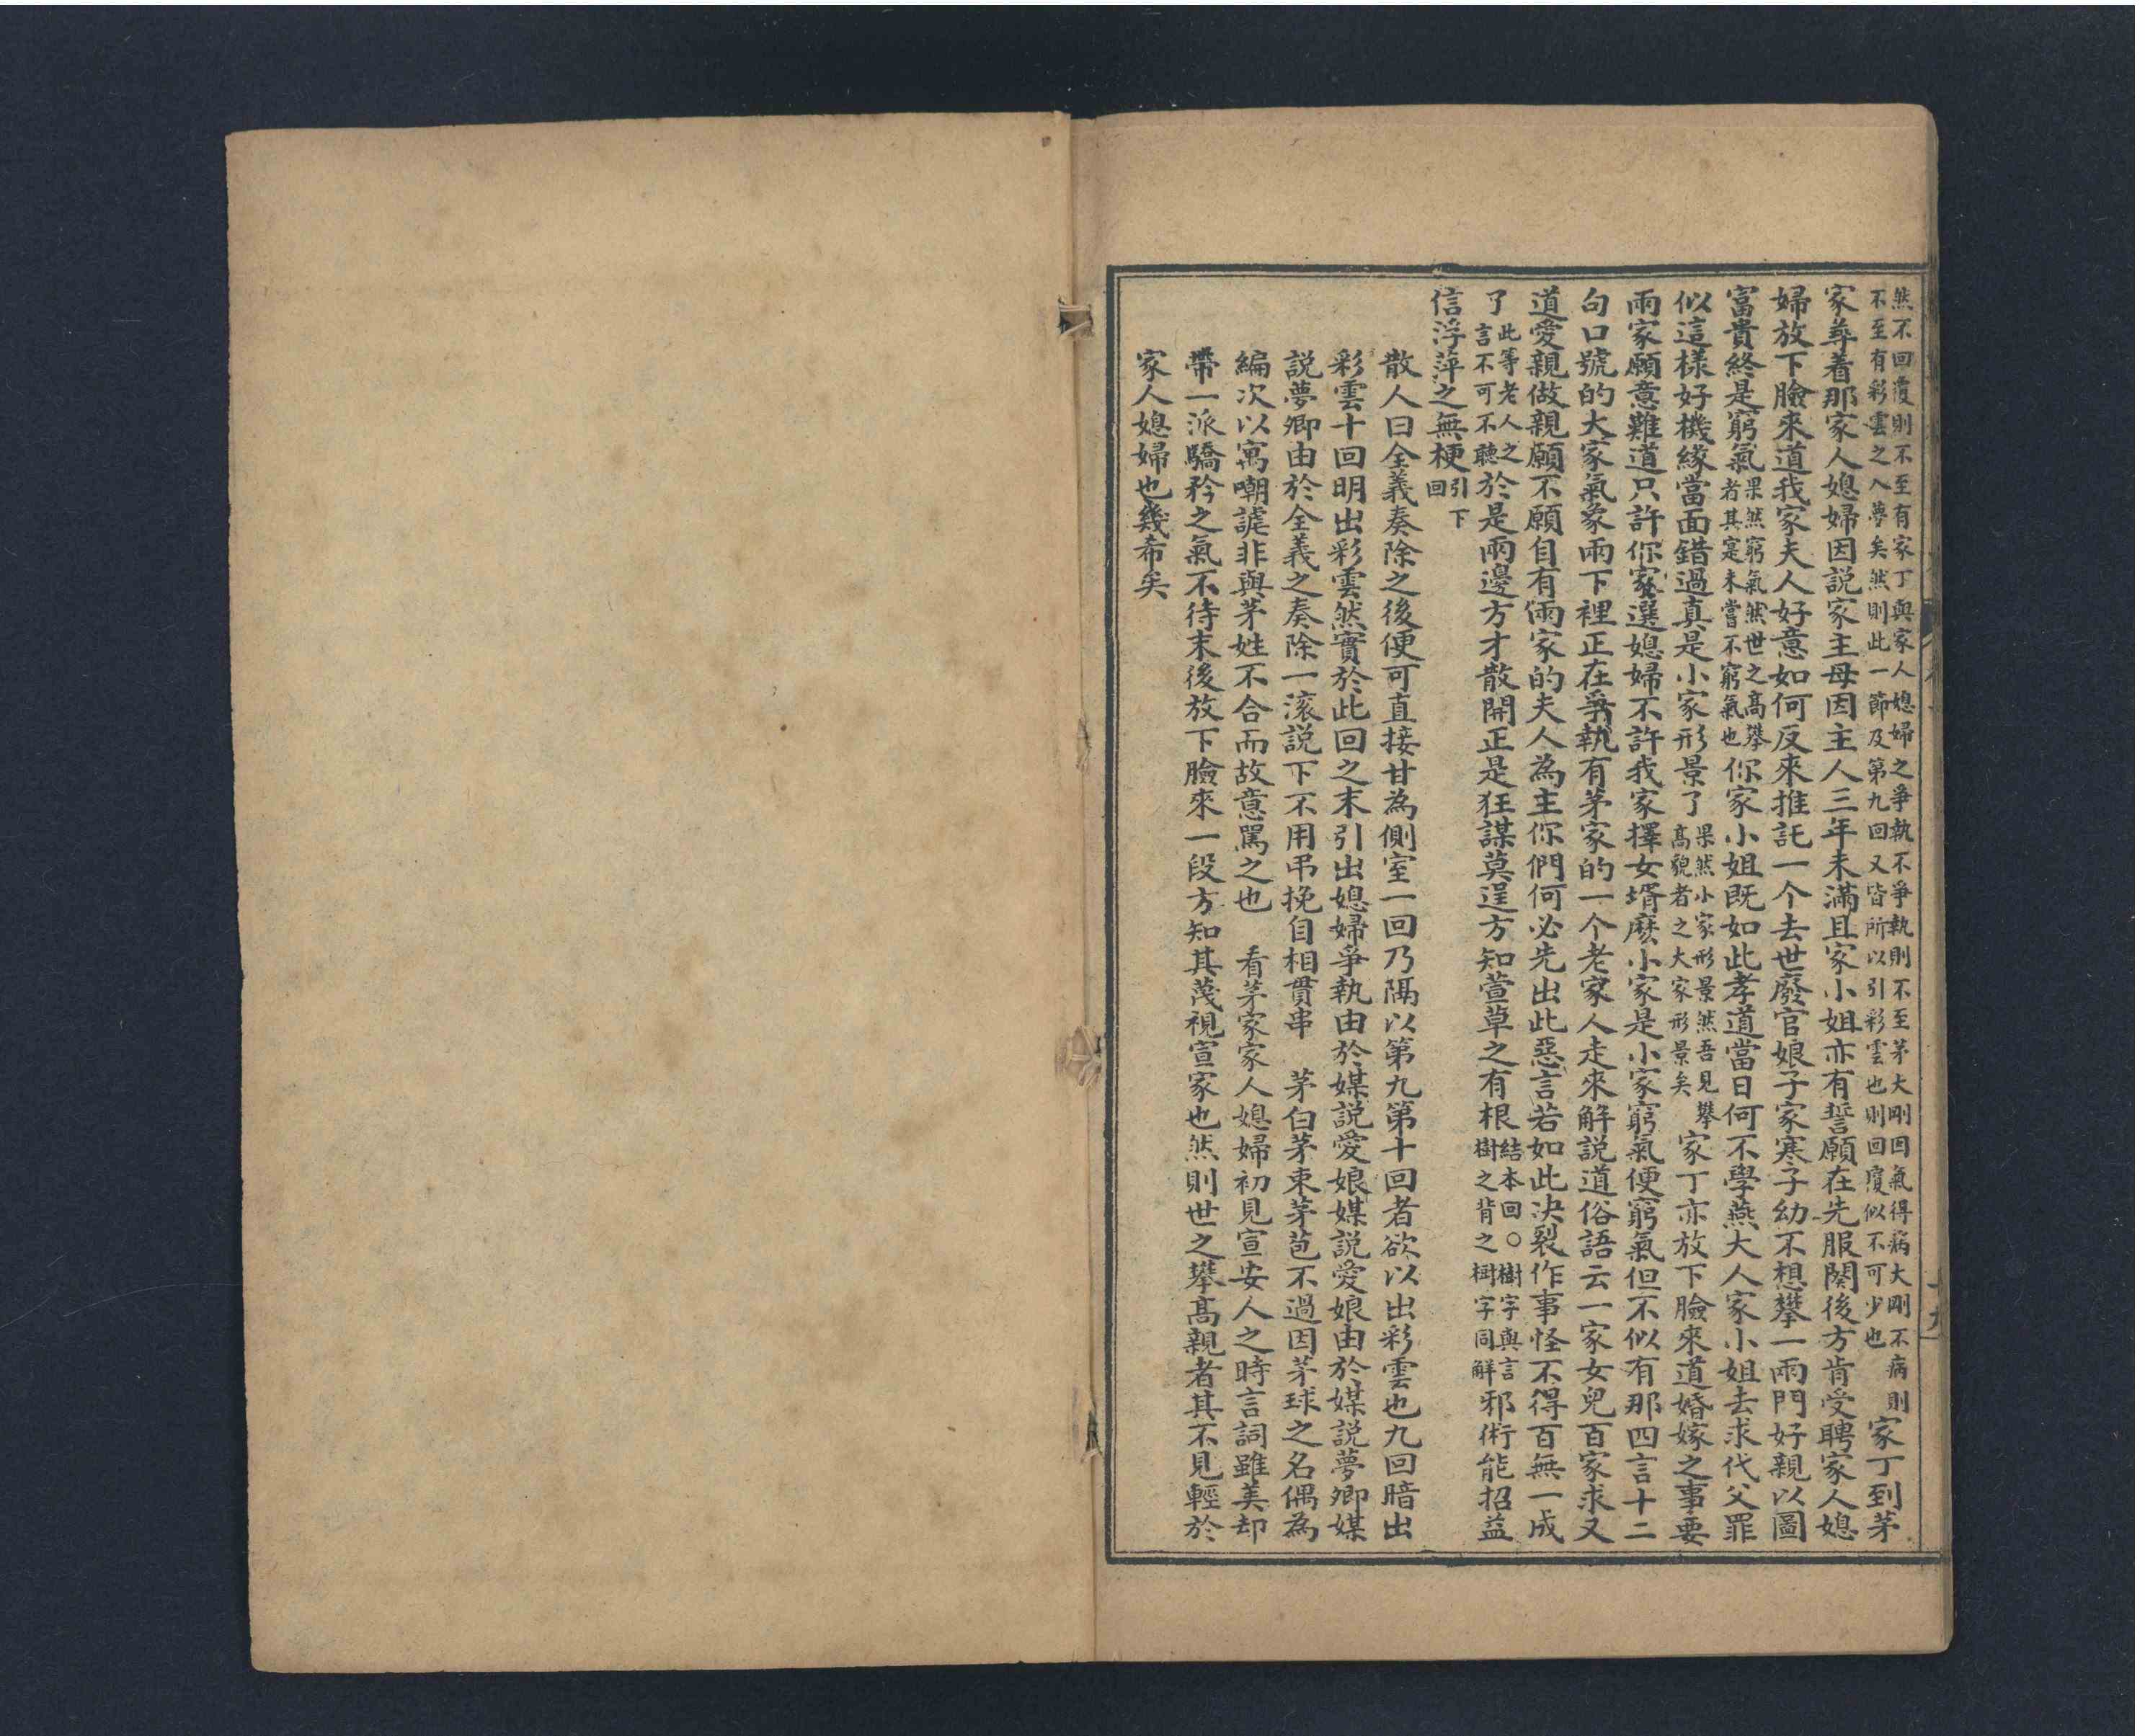 然不回覆則不至有家丁與家人媳婦之爭執不爭執則不至茅大剛因氣得病大剛不病則
不至有彩雲之入夢矣然則此一節及第九回又皆所以引彩雲也則回覆似不可少也
家丁到茅
家尋着那家人媳婦因説家主母因主人三年未滿且家小姐亦有誓願在先服闋後方肯受聘家人媳
婦放下臉來道我家夫人好意如何反來推託一个去世廢官娘子家寒子幼不想攀一兩門好親以圖
富貴終是窮氣
果然窮氣然世之高攀
者其寔未嘗不窮氣也
你家小姐既如此孝道當日何不學燕大人家小姐去求代父罪
似這樣好機緣當面錯過真是小家形景了
果然小家形景然吾見攀
高貌者之大家形景矣
家丁亦放下臉來道婚嫁之事要
兩家願意難道只許你家選媳婦不許我家擇女壻麽小家是小家窮氣便窮氣但不似有那四言十二
句口號的大家氣象兩下裡正在爭執有茅家的一个老家人走來解説道俗語云一家女兒百家求又
道愛親做親願不願自有倆家的夫人為主你們何必先出此惡言若如此決裂作事怪不得百無一成
了
此等老人之
言不可不聽
於是兩邊方才散開正是狂謀莫逞方知萱草之有根
結本回〇樹字與言
樹之背之樹字同解
邪術能招益
信浮萍之無梗
引下
回
散人曰全義奏除之後便可直接甘為側室一回乃隔以第九第十回者欲以出彩雲也九回暗出
彩雲十回明出彩雲然實於此回之末引出媳婦爭執由於媒説愛娘媒説愛娘由於媒説夢卿媒
説夢卿由於全義之奏除一滚説下不用弔挽自相貫串　茅白茅束茅苞不過因茅球之名偶為
編次以寓嘲謔非與茅姓不合而故意駡之也　看茅家家人媳婦初見宣安人之時言詞雖美却
帶一派驕矜之氣不待末後放下臉來一段方知其蔑視宣家也然則世之攀高親者其不見輕於
家人媳婦也幾希矣